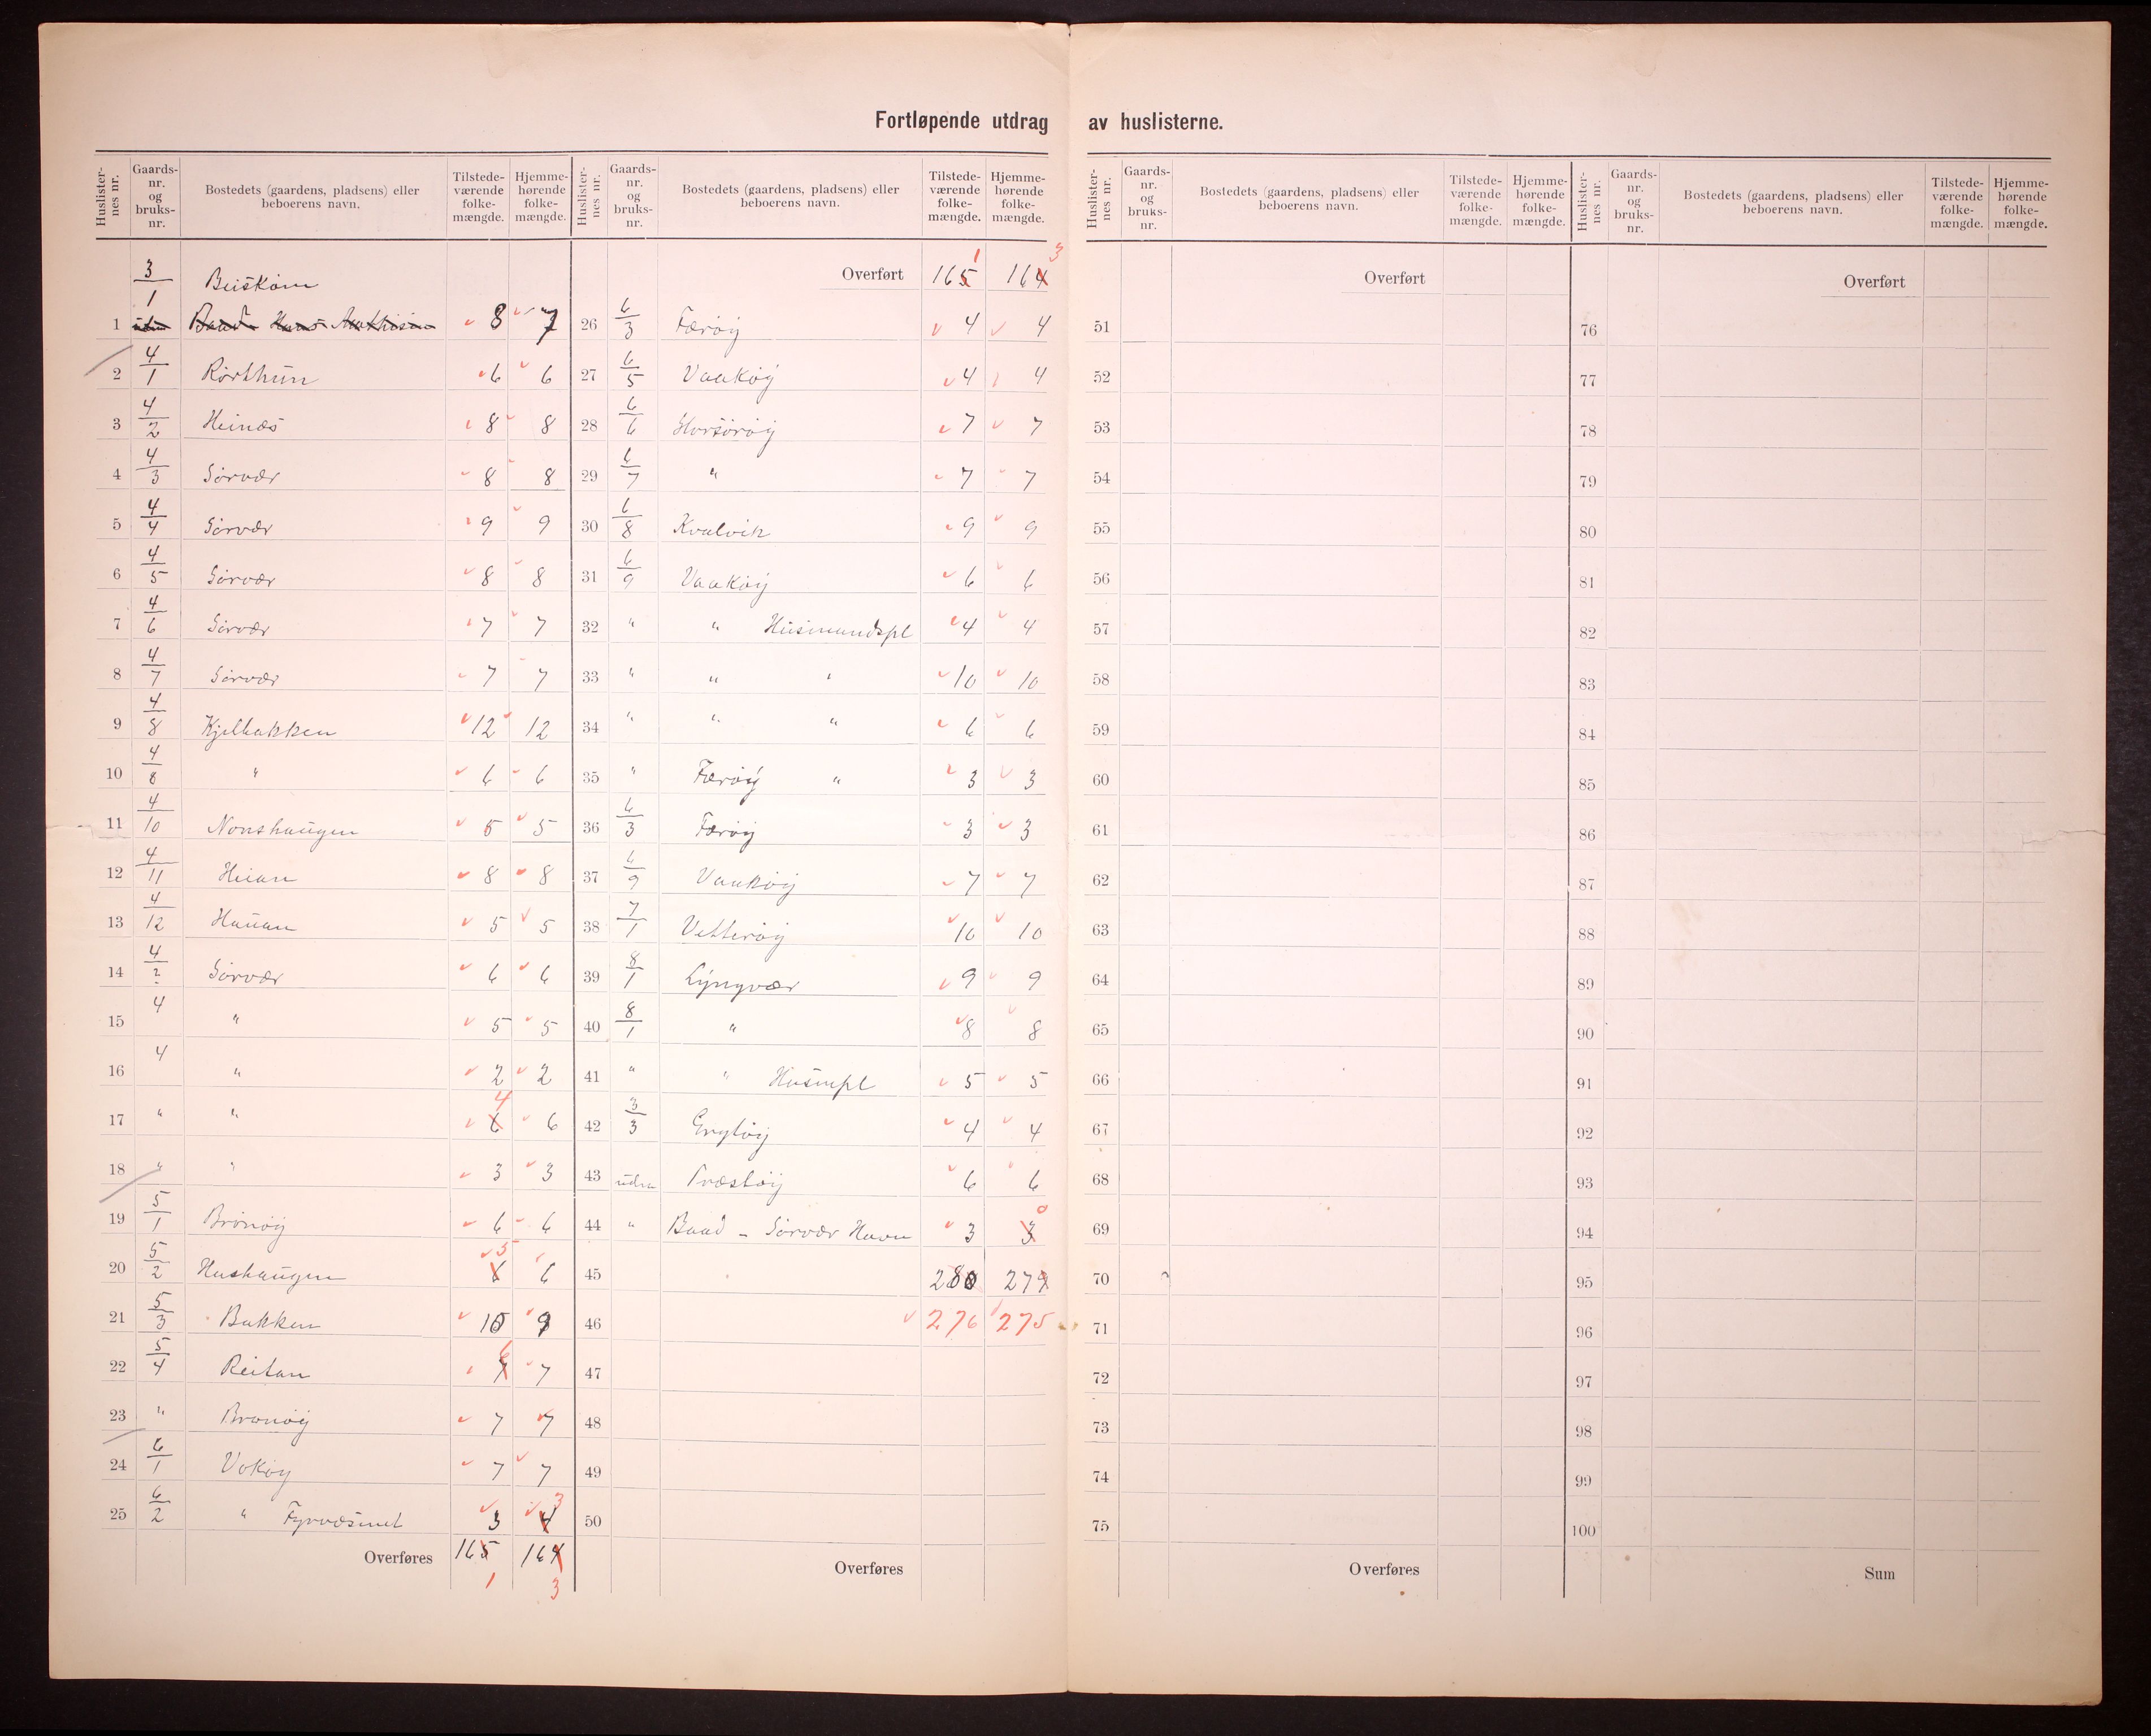 Fortløpende utdrag av huslisterne.
Huslister-nes nr. Gaards-nr. og bruks-nr. Bostedets (gaardens, pladsens) eller beboerens navn. Tilstede-værende folke-mængde. Hjemme-hørende folke-mængde.
3/1 Beiskom
1 udm Baad Hans Mathisen 8 7
2 4/1 Rørthun 6 6
3 4/2 Heinæs 8 8
4 4/3 Sørvær 8 8
5 4/4 Sørvær 9 9
6 4/5 Sørvær 8 8
7 4/6 Sørvær 7 7
8 4/7 Sørvær 7 7
9 4/8 Kjelbakken 12 12
10 4/8 " 6 6
11 4/10 Nonshaugen 5 5
12 4/11 Heian 8 8
13 4/12 Hauan 5 5
14 4/? Sørvær 6 6
15 4 " 5 5
16 4 " 2 2
17 " " 6 4 6
18 " " 3 3
19 5/1 Brønøy 6 6
20 5/2 Hushaugen 6 5 6
21 5/3 Bakken 10 9
22 5/4 Reitan 7 6 7
23 " Brønøy 7 7
24 6/1 Vokøy 7 7
25 6/2 " Fyrvæsenet 3 4 3
Overføres 165 164
1 3
Huslister-nes nr. Gaards-nr. og bruks-nr. Bostedets (gaardens, pladsens) eller beboerens navn. Tilstede-værende folke-mængde. Hjemme-hørende folke-mængde.
Overført 165 1 164 3
26 6/3 Færøy 4 4
27 6/5 Vaakøy 4 4
28 6/6 Horsørøy 7 7
29 6/7 " 7 7
30 6/8 Kvalvik 9 9
31 6/9 Vaakøy 6 6
32 " " Husmandspl 4 4
33 " " " 10 10
34 " " " 6 6
35 " Færøy " 3 3
36 6/3 Færøy 3 3
37 6/9 Vaakøy 7 7
38 7/1 Vetterøy 10 10
39 8/1 Lyngvær 9 9
40 8/1 " 8 8
41 " " Husmpl 5 5
42 3/3 Engløy 4 4
43 udm Præstøy 6 6
44 " Baad - Sørvær Havn 3 3 0
45 280 279
46 276 275
47
48
49
50
Overføres
Huslister-nes nr. Gaards-nr. og bruks-nr. Bostedets (gaardens, pladsens) eller beboerens navn. Tilstede-værende folke-mængde. Hjemme-hørende folke-mængde.
Overført
51
52
53
54
55
56
57
58
59
60
61
62
63
64
65
66
67
68
69
70
71
72
73
74
75
Overføres
Huslister-nes nr. Gaards-nr. og bruks-nr. Bostedets (gaardens, pladsens) eller beboerens navn. Tilstede-værende folke-mængde. Hjemme-hørende folke-mængde.
Overført
76
77
78
79
80
81
82
83
84
85
86
87
88
89
90
91
92
93
94
95
96
97
98
99
100
Sum